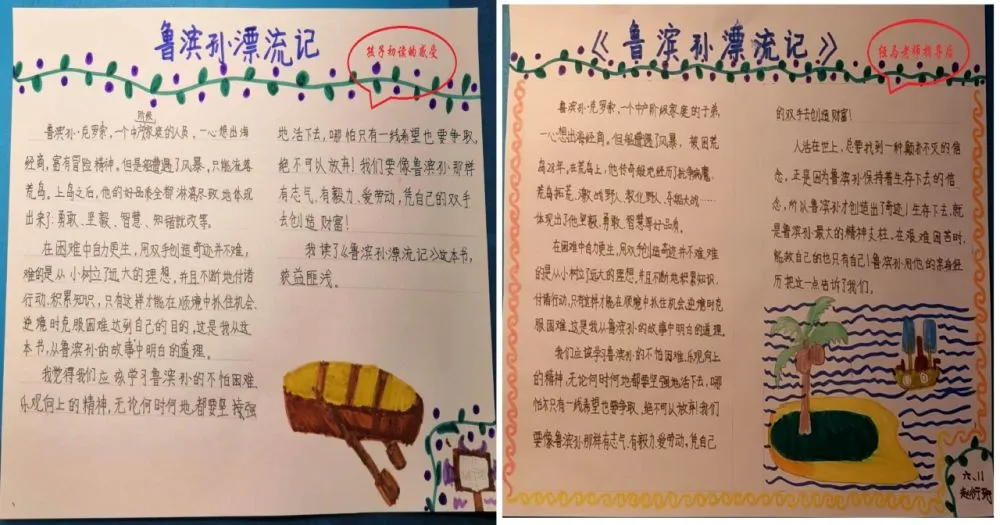 鲁滨孙漂流记
孩子初读的感受
阶级
鲁滨孙·克罗索,一个中产家庭的人员,一心想出海
经商,富有冒险精神。但是船遭遇了风暴,只能流落
荒岛。上岛之后,他的好品质全都淋漓尽致地体现
出来了:勇敢、坚毅、智慧、知错就改等。
在困难中自力更生,用双手创造奇迹并不难,
难的是从小树立了远大的理想,并且不断地付诸
行动,积累知识,只有这样才能在顺境中抓住机会、
逆境时克服困难,达到自己的目的,这是我从这
本书,从鲁滨孙的故事中明白的道理。
我觉得我们应该学习鲁滨孙的不怕困难、
乐观向上的精神,无论何时何地,都要坚强
地活下去,哪怕只有一线希望也要争取,
绝不可以放弃!我们要像鲁滨孙那样
有志气、有毅力、爱劳动,凭自己的双手
去创造财富!
我读了《鲁滨孙漂流记》这本书,
获益匪浅。
《鲁滨孙漂流记》
经马老师指导后
鲁滨孙·克罗索,一个中产阶级家庭的子弟,
一心想出海经商。但船遭遇了风暴,被困荒
岛28年。在荒岛上,他传奇般地经历了抗争病魔、
荒岛拓荒、激战野人、教化野人、夺船大战……
体现出了他坚毅、勇敢、智慧等好品质。
在困难中自力更生,用双手创造奇迹并不难,难
的是从小树立了远大的理想,并且不断地积累知识,
付诸行动,只有这样才能在顺境中抓住机会,逆境时克
服困难。这是我从鲁滨孙的故事中明白的道理。
我们应该学习鲁滨孙的不怕困难、乐观向上
的精神,无论何时何地,都要坚强地活下去,哪
怕只有一线希望也要争取,绝不可放弃!我们
要像鲁滨孙那样有志气、有毅力、爱劳动,凭自己
的双手去创造财富!
人活在世上,总要找到一种颠扑不灭的信
念,正是因为鲁滨孙保持着生存下去的信
念,所以鲁滨孙才创造出了奇迹!生存下去,就
是鲁滨孙最大的精神支柱。在艰难困苦时,
能救自己的也只有自己!鲁滨孙用他的亲身经
历把这一点告诉了我们。
六、11